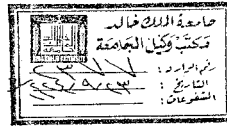 جامعة الملك خالد
مكتب وكيل الجامعة
رقم الوارد :
التاريخ : ٢٣ / ٩ /
المشفوعات :